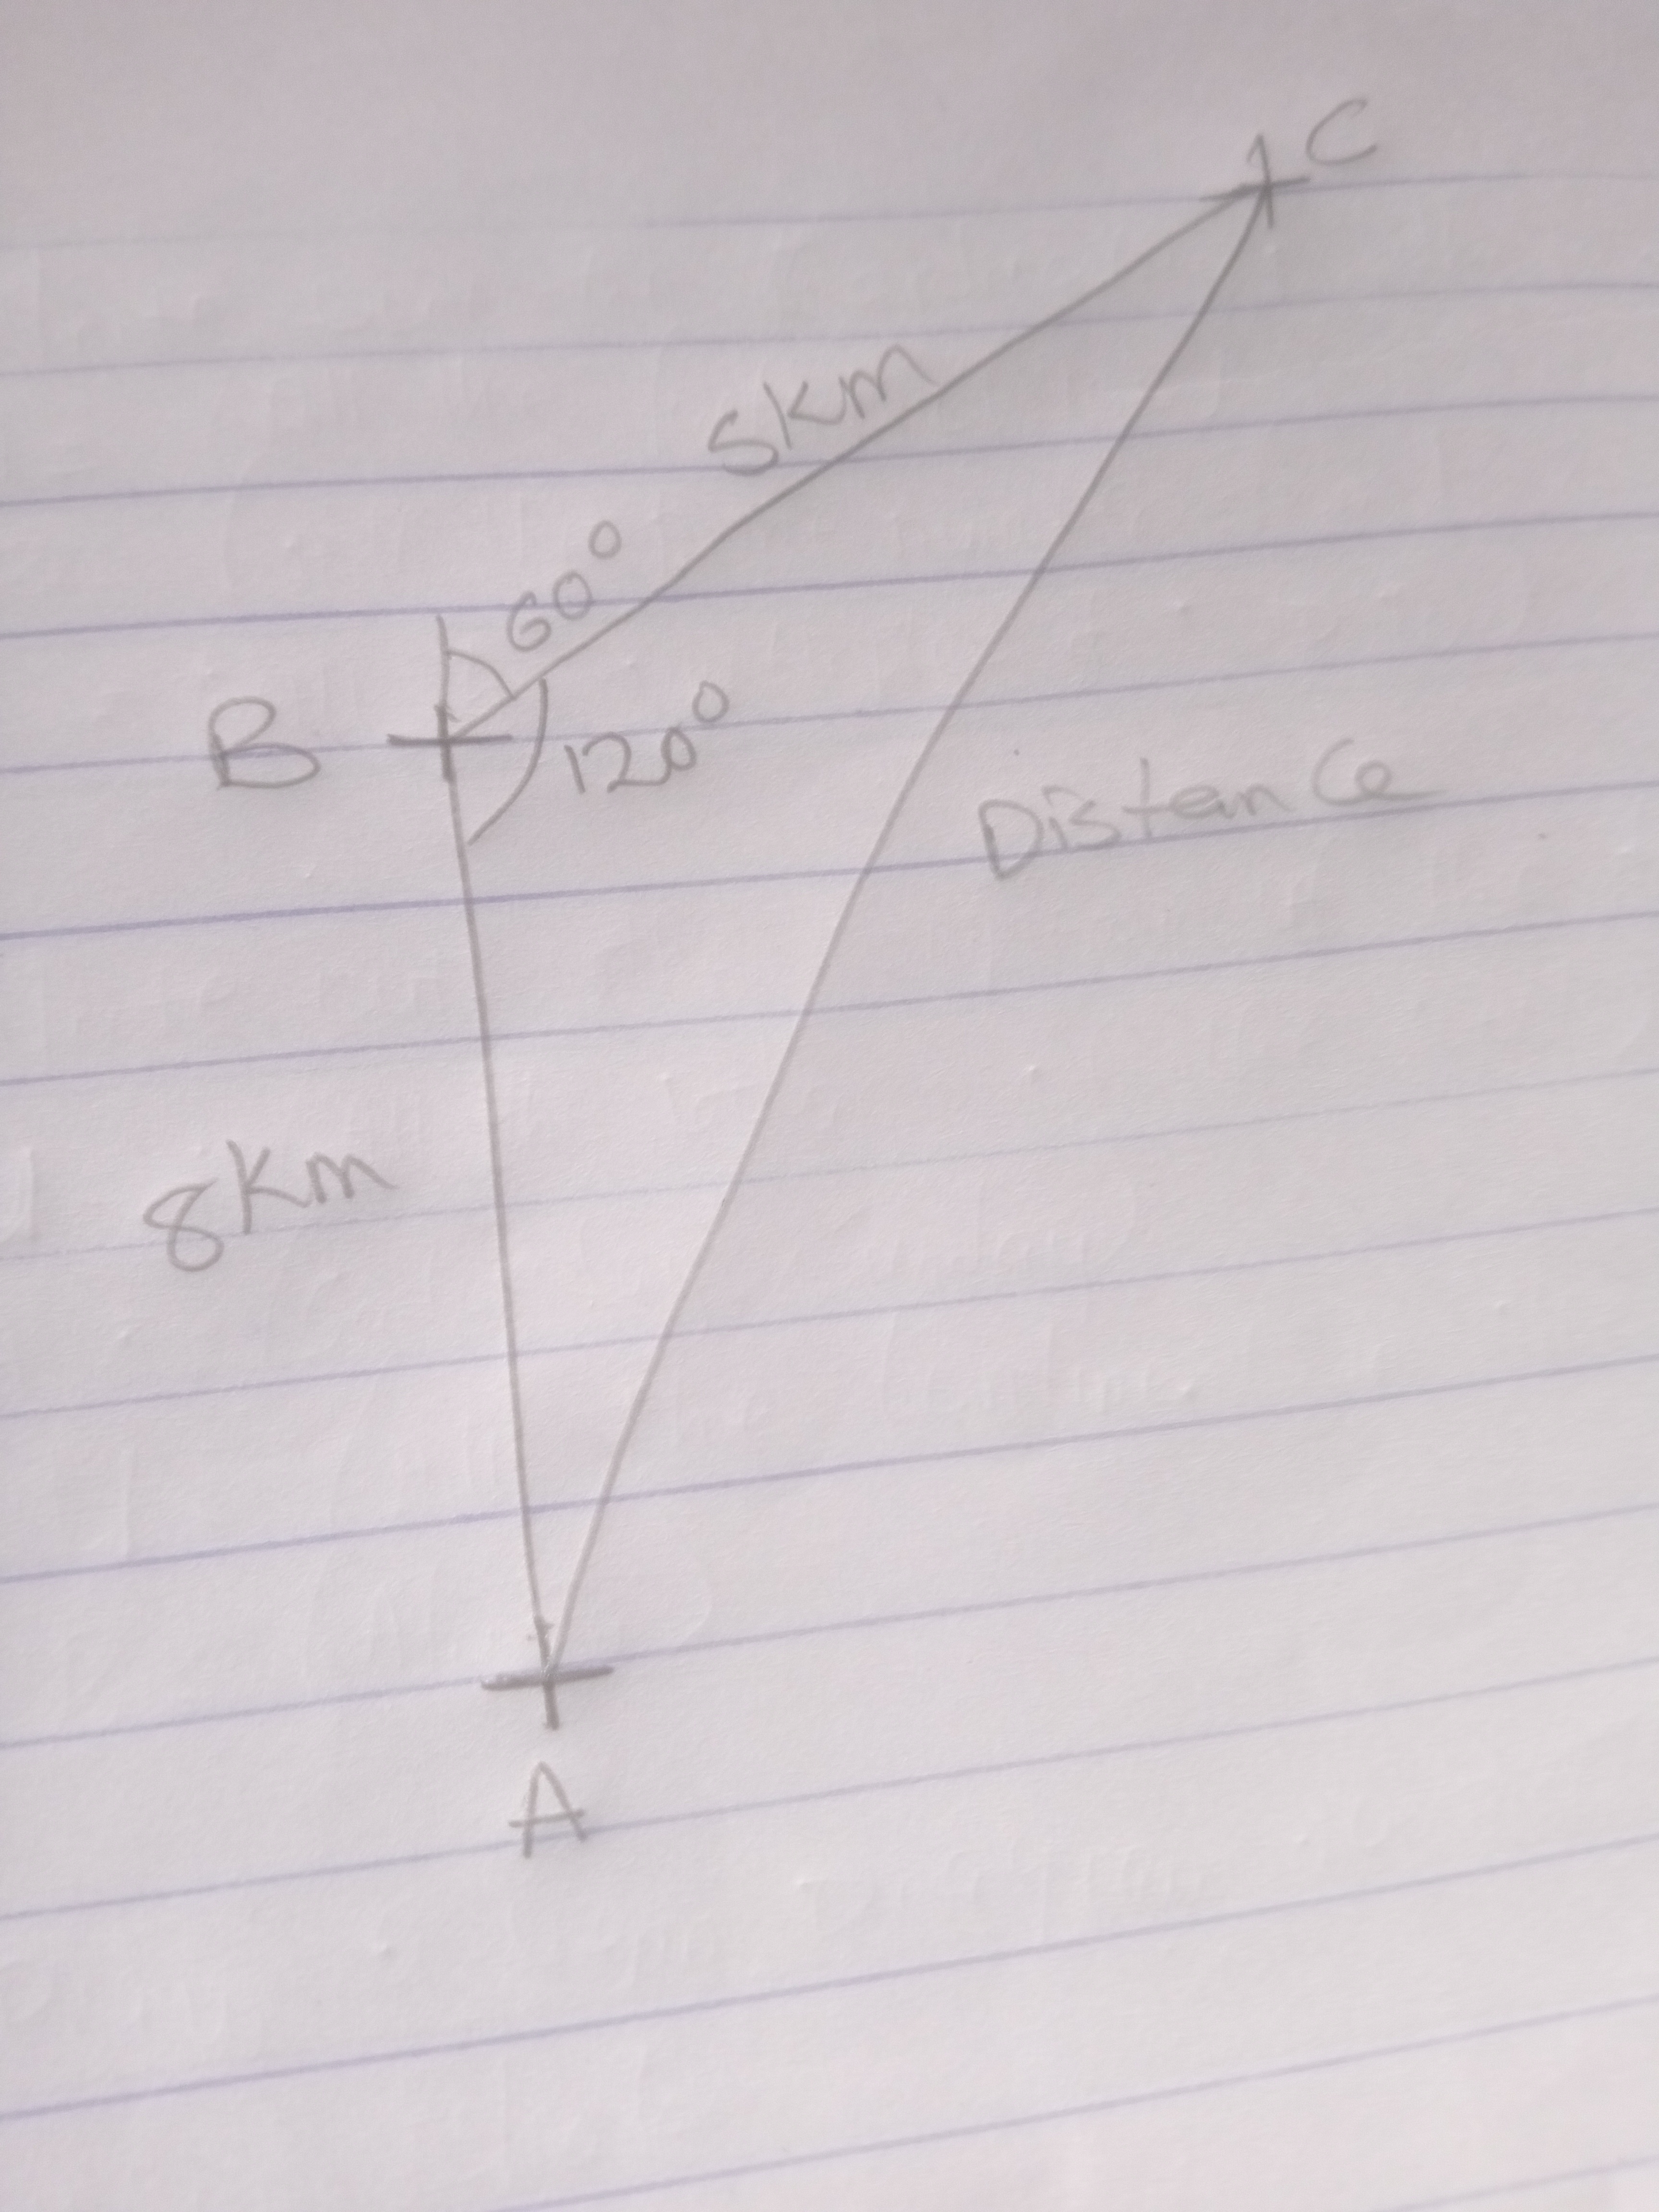 C
5km
60°
B
120°
Distance
8km
A